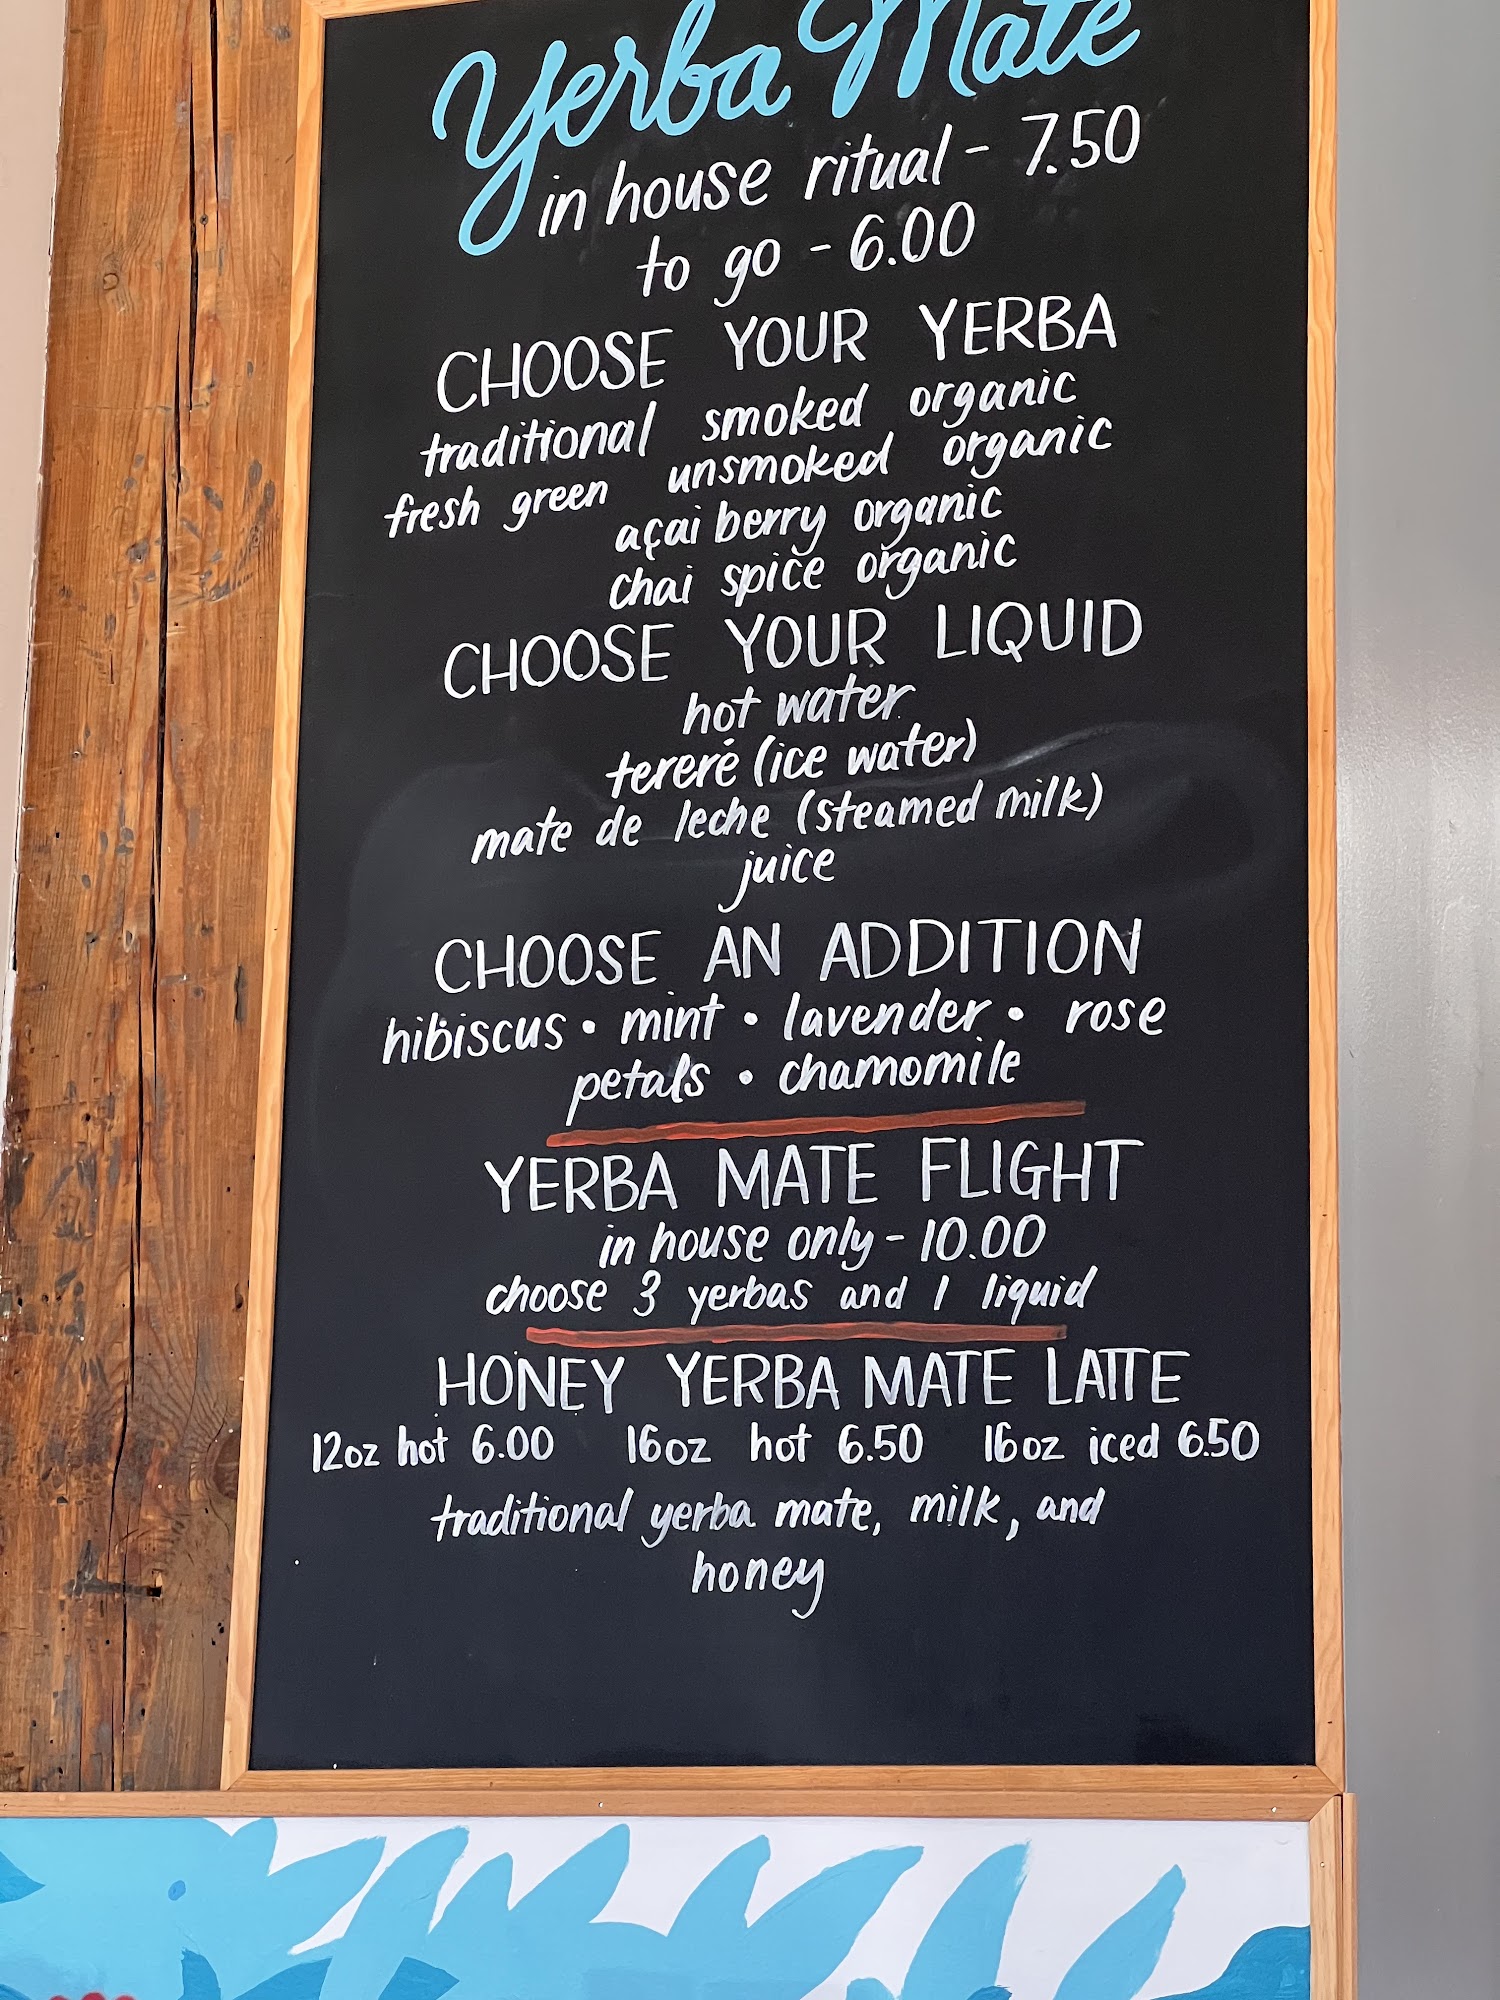 Yerba Mate
in house ritual - 7.50
to go - 6.00
CHOOSE YOUR YERBA
traditional smoked organic
fresh green unsmoked organic
açai berry organic
chai spice organic
CHOOSE YOUR LIQUID
hot water
tereré (ice water)
mate de leche (steamed milk)
juice
CHOOSE AN ADDITION
hibiscus • mint • lavender • rose
petals • chamomile
YERBA MATE FLIGHT
in house only - 10.00
choose 3 yerbas and 1 liquid
HONEY YERBA MATE LATTE
12oz hot 6.00 16oz hot 6.50 16oz iced 6.50
traditional yerba mate, milk, and
honey